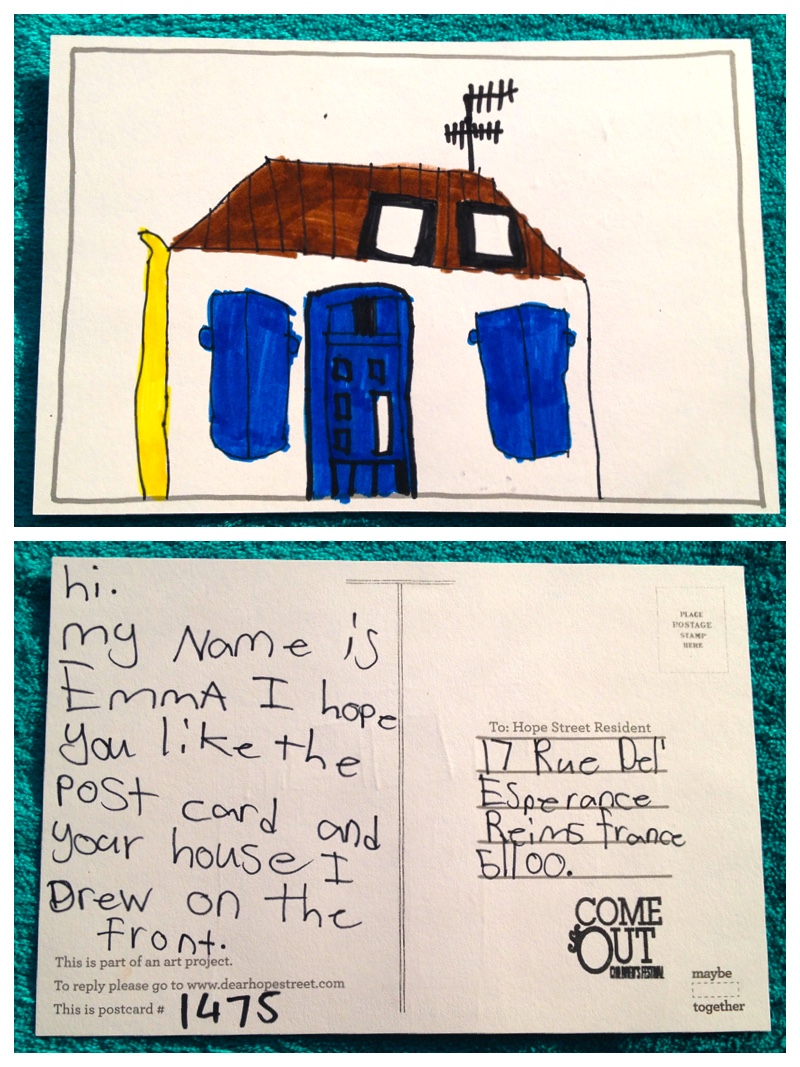 hi.
my Name is
EmmA I hope
you like the
post card and
your house I
Drew on the
front.
This is part of an art project.
To reply please go to www.dearhopestreet.com
This is postcard # 1475
PLACE
POSTAGE
STAMP
HERE
To: Hope Street Resident
17 Rue Del'
Esperance
Reims france
51100.
COME
OUT
CHILDREN'S FESTIVAL
maybe
together